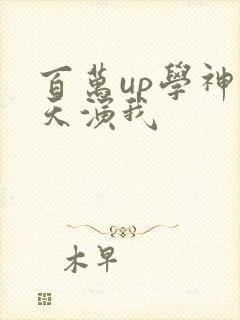 百萬up學神
天演我
木早